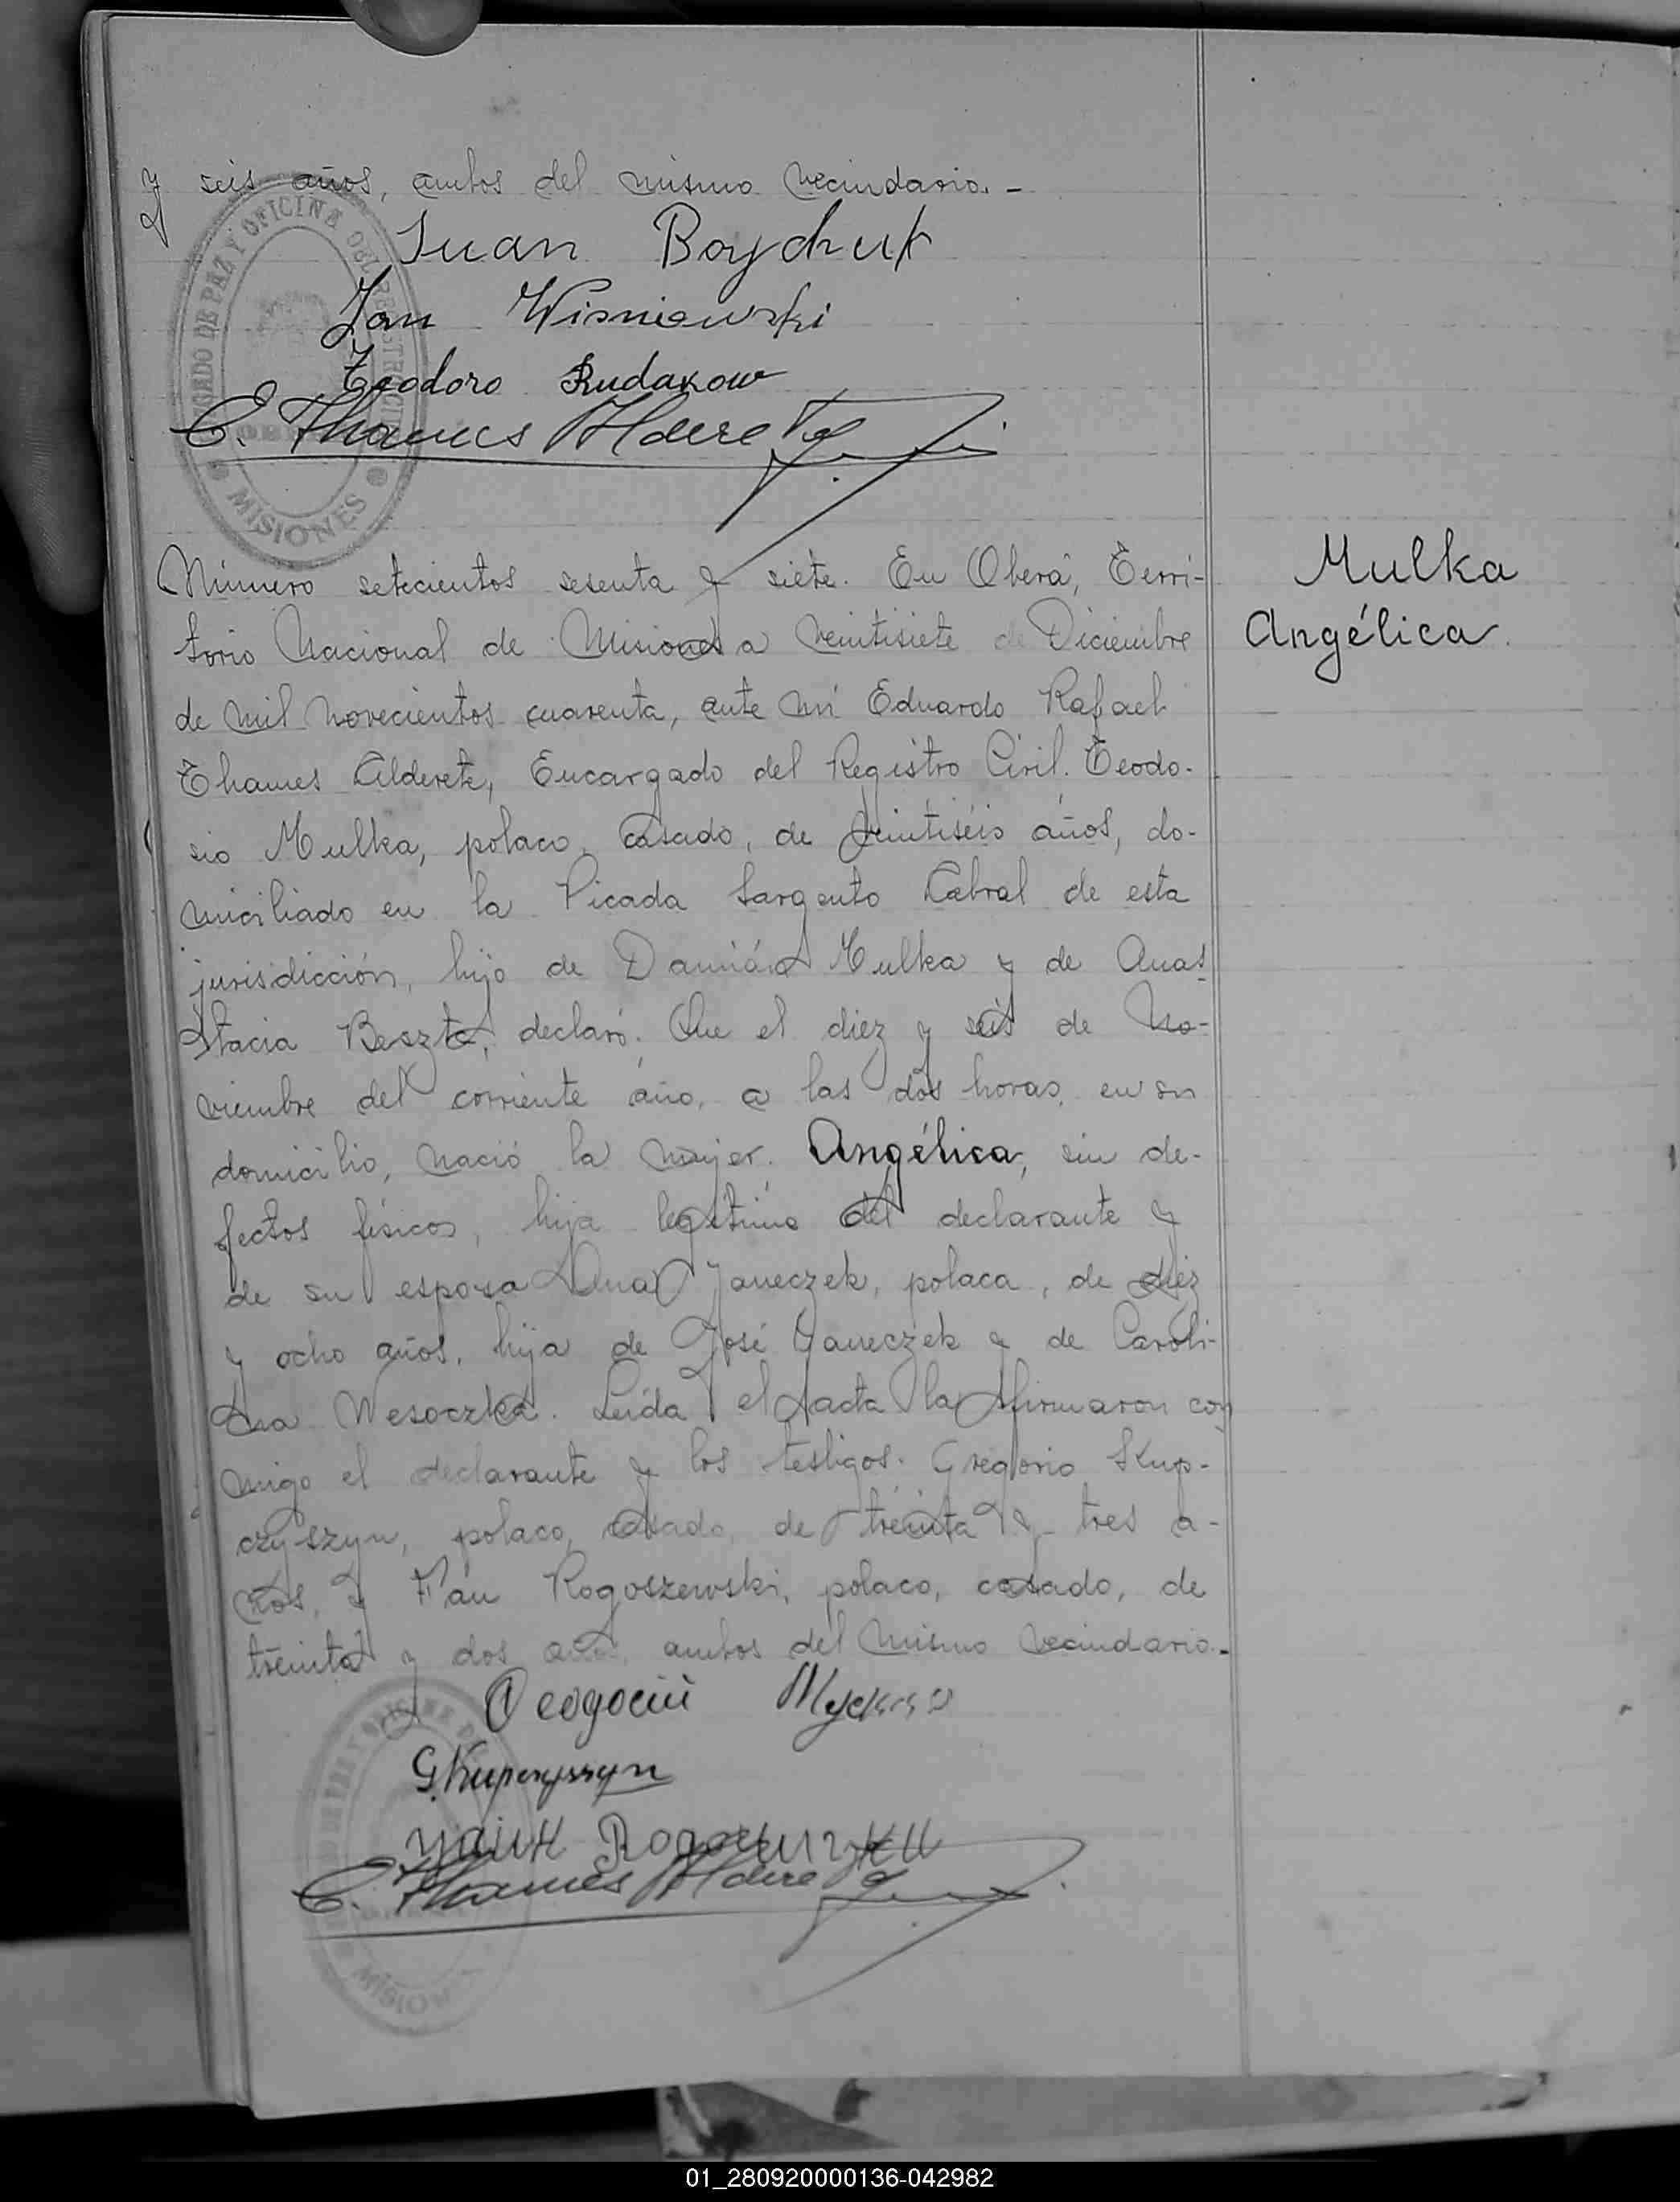 y seis años, ambos del mismo vecindario. -
Juan Boychuk
Jan Wisniewski
Teodoro Rudakow
E. Thames Alderete
JUZGADO DE PAZ Y OFICINA DEL REGISTRO CIVIL
MISIONES
Número setecientos sesenta y siete. En Oberá, Terri-
torio Nacional de Misiones a veintisiete de Diciembre
de mil novecientos cuarenta, ante mí Eduardo Rafael
Thames Alderete, Encargado del Registro Civil. Teodo-
sio Mulka, polaco, casado, de veintiséis años, do-
miciliado en la Picada Sargento Cabral de esta
jurisdicción, hijo de Damián Mulka y de Anas-
tacia Beszta, declaró: Que el diez y seis de No-
viembre del corriente año, a las dos horas, en su
domicilio, nació la mujer: Angélica, sin de-
fectos físicos, hija legítima del declarante y
de su esposa Ana Janeczek, polaca, de diez
y ocho años, hija de José Janeczek y de Caroli-
na Wesoczka. Leída el acta la firmaron con
migo el declarante y los testigos: Gregorio Skup-
czyszyn, polaco, casado, de treinta y tres a-
ños, y Páu Rogoszewski, polaco, casado, de
treinta y dos años, ambos del mismo vecindario. -
Mulka
Angélica.
Теодосій
G. Kupczyszyn
E. Thames Alderete
MISIONES
01_280920000136-042982